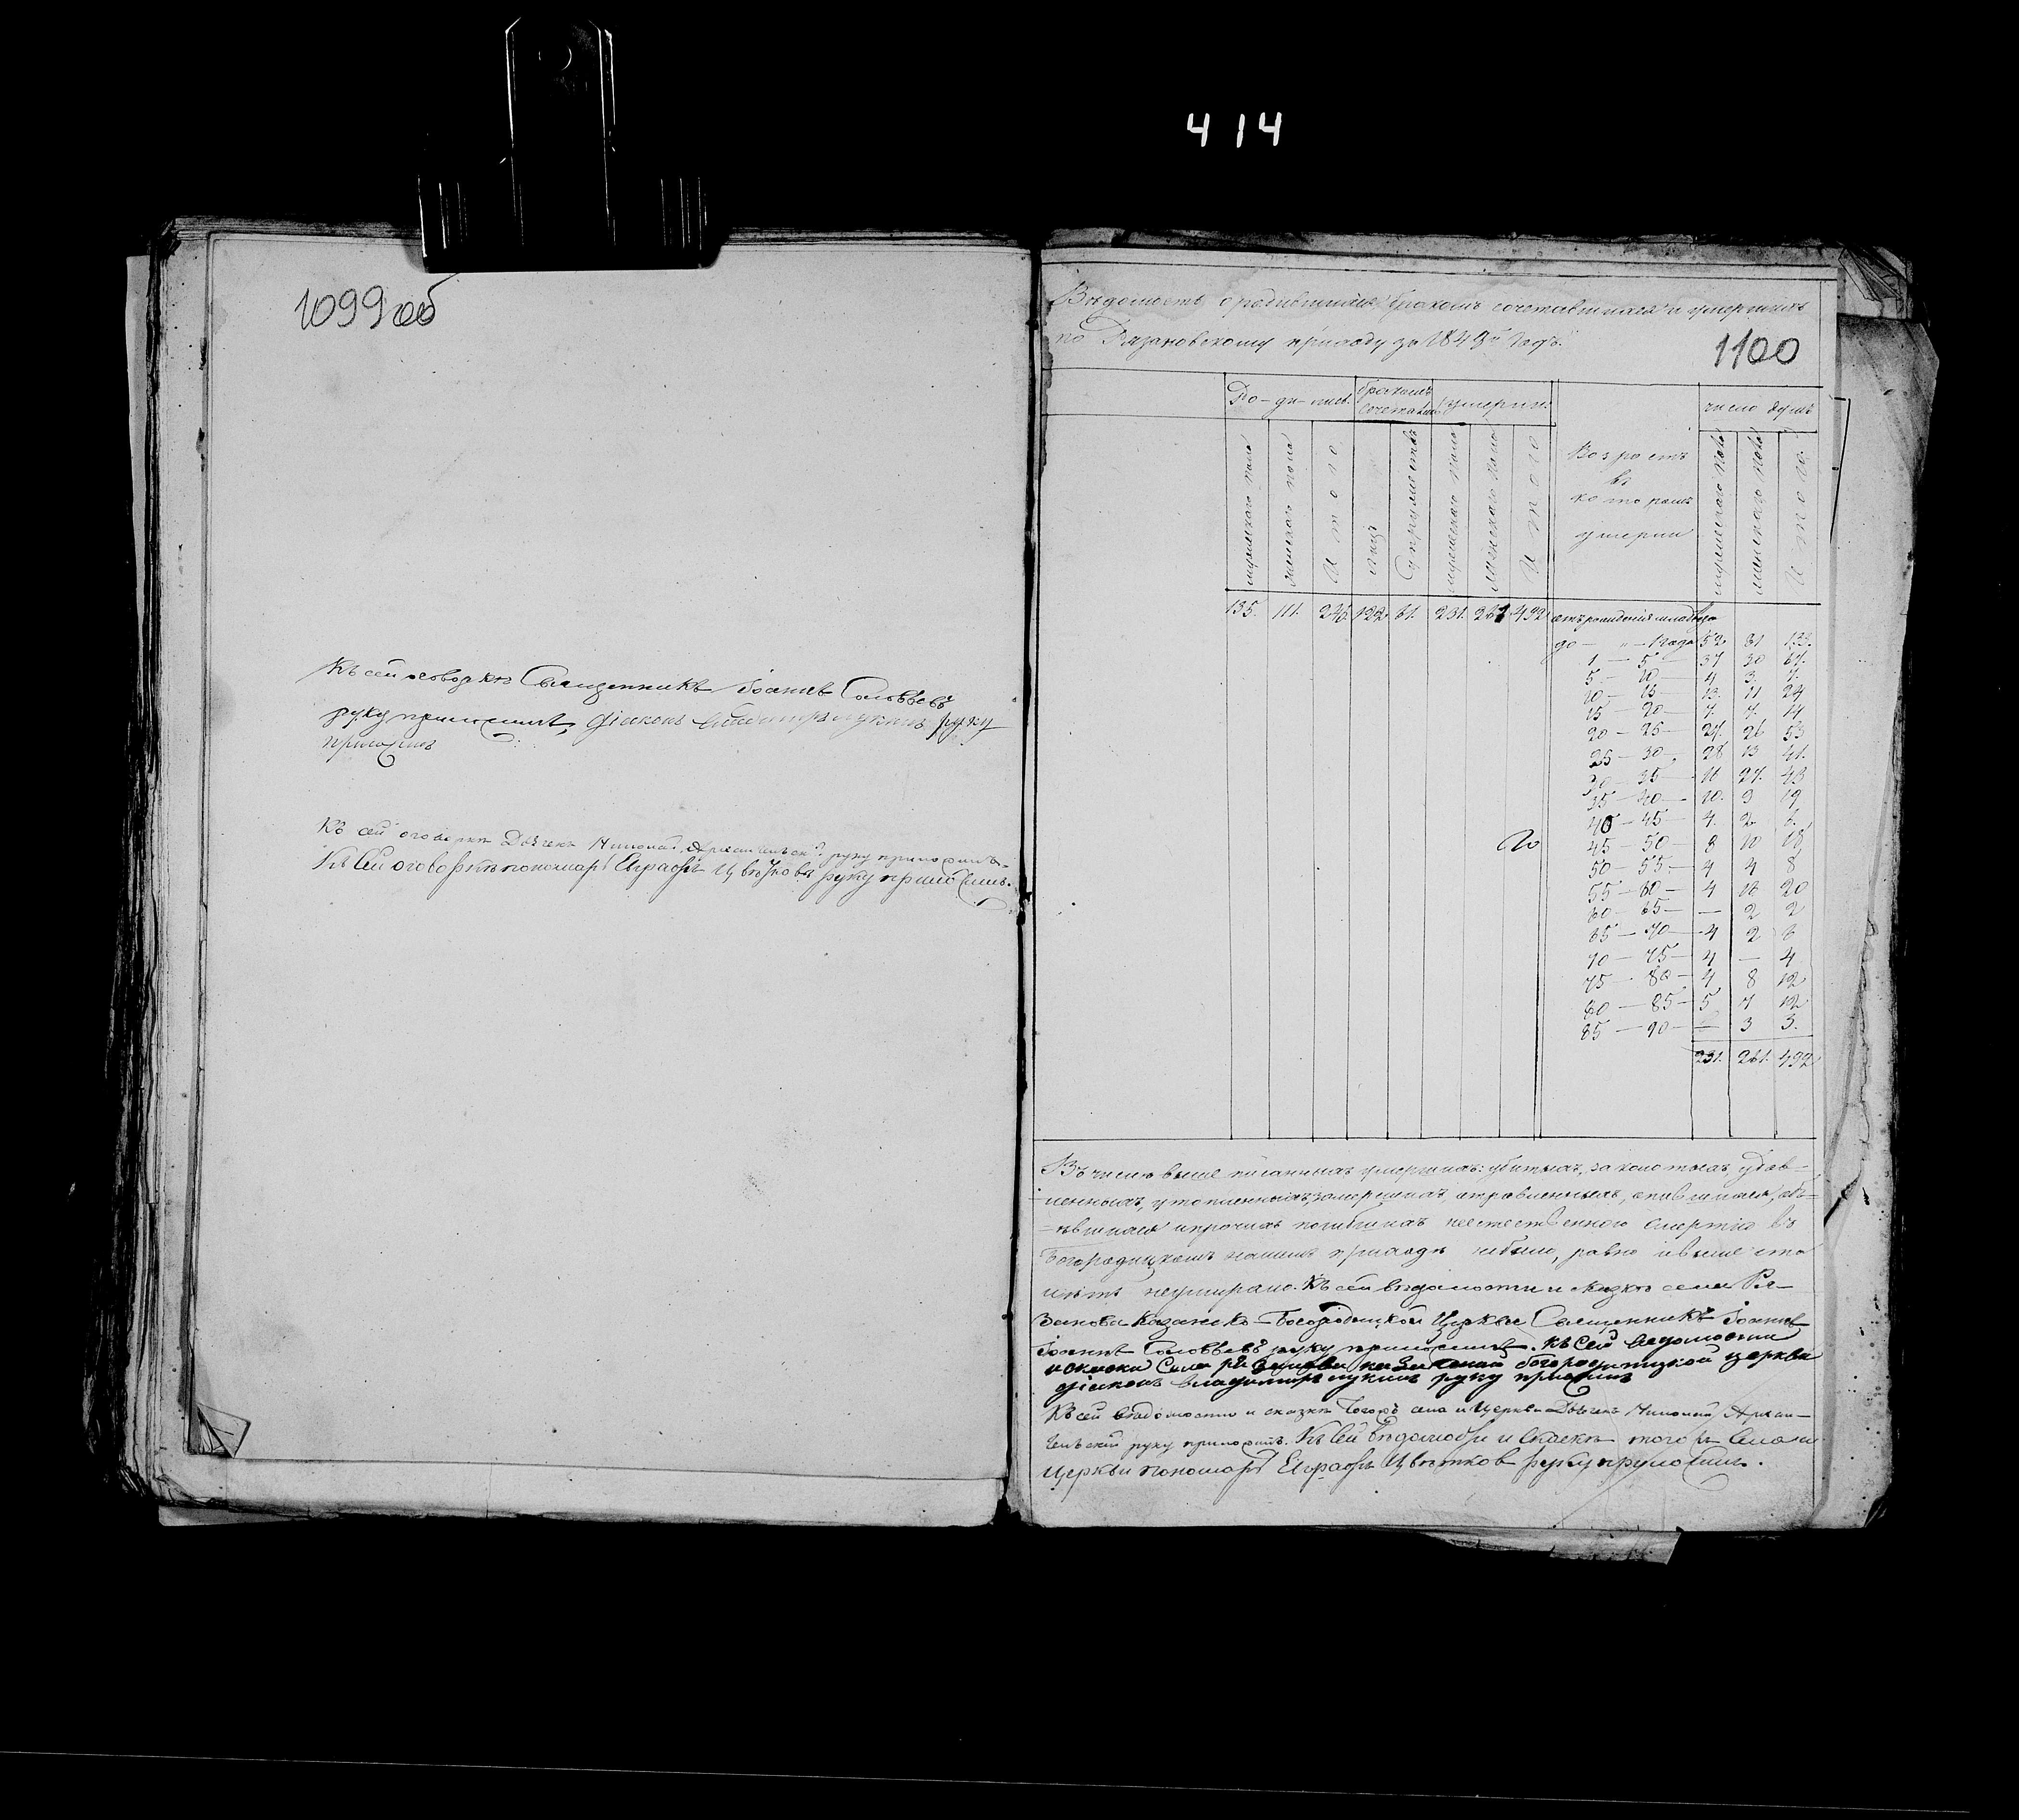 414
1099 об
Къ сей оговоркѣ Священникъ Іоаннъ Соловьевъ
руку приложилъ, Діаконъ Владимиръ Лукинъ руку
приложилъ
Къ сей оговоркѣ Дьячекъ Николай руку приложилъ.
Къ сей оговоркѣ пономарь Евграфъ Цвѣтковъ руку приложилъ.
Вѣдомость о родившихся, бракомъ сочетавшихся и умершихъ
по Рязановскому приходу за 184 годъ.
1100
Ро-ди-лись. бракомъ умерли. число душъ
сочетались
мужескаго пола женскаго пола Итого лицъ Супружествъ мужескаго пола женскаго пола Итого Возрастъ въ которомъ умерли мужескаго пола женскаго пола Итого.
135. 111. 246. 122. 61. 231. 261. 492. отъ рожденія младенца
до — " — 1 года 52. 81 133.
1 — 5 — 37 30 67.
5 — 10 — 4 3. 7.
10 — 15 — 13. 11 24
15 — 20 — 7. 7. 14
20 — 25 — 27. 26 53
25 — 30 — 28 13 41.
30 — 35 — 16 27. 43
35 — 40 — 10. 9 19
40 — 45 — 4. 2 6.
45 — 50 — 8 10 18
50 — 55 — 4 4 8
55 — 60 — 4 16 20
60 — 65 — — 2 2
65 — 70 — 4 2 6
70 — 75 — 4 — 4
75 — 80 — 4 8 12
80 — 85 — 5 7 12
85 — 90 — — 3 3.
231. 261. 492
Въ числѣ выше писанныхъ умершихъ: убитыхъ, заколотыхъ, удав-
ленныхъ, утопленныхъ, замерзшихъ, отравленныхъ, опившихся, объ-
ѣвшихся и прочихъ погибшихъ неестественною смертію въ
Богородицкомъ нашемъ приходѣ небыло, равно и выше ста
лѣтъ неумирало. Къ сей вѣдомости и сказкѣ села Ря-
занова Казанско-Богородицкой Церкви Священникъ Іоаннъ
Іоаннъ Соловьевъ руку приложилъ. Къ сей ведомости
и скаски Села Рязанова Казанской богородицкой церкви
діаконъ Владимиръ Лукинъ руку приложилъ
Къ сей вѣдомости и сказкѣ тогожъ села и Церкви Дьячекъ Николай
руку приложилъ. Къ сей вѣдомости и скаскѣ того жъ Села и
Церкви пономарь Евграфъ Цвѣтковъ руку приложилъ.